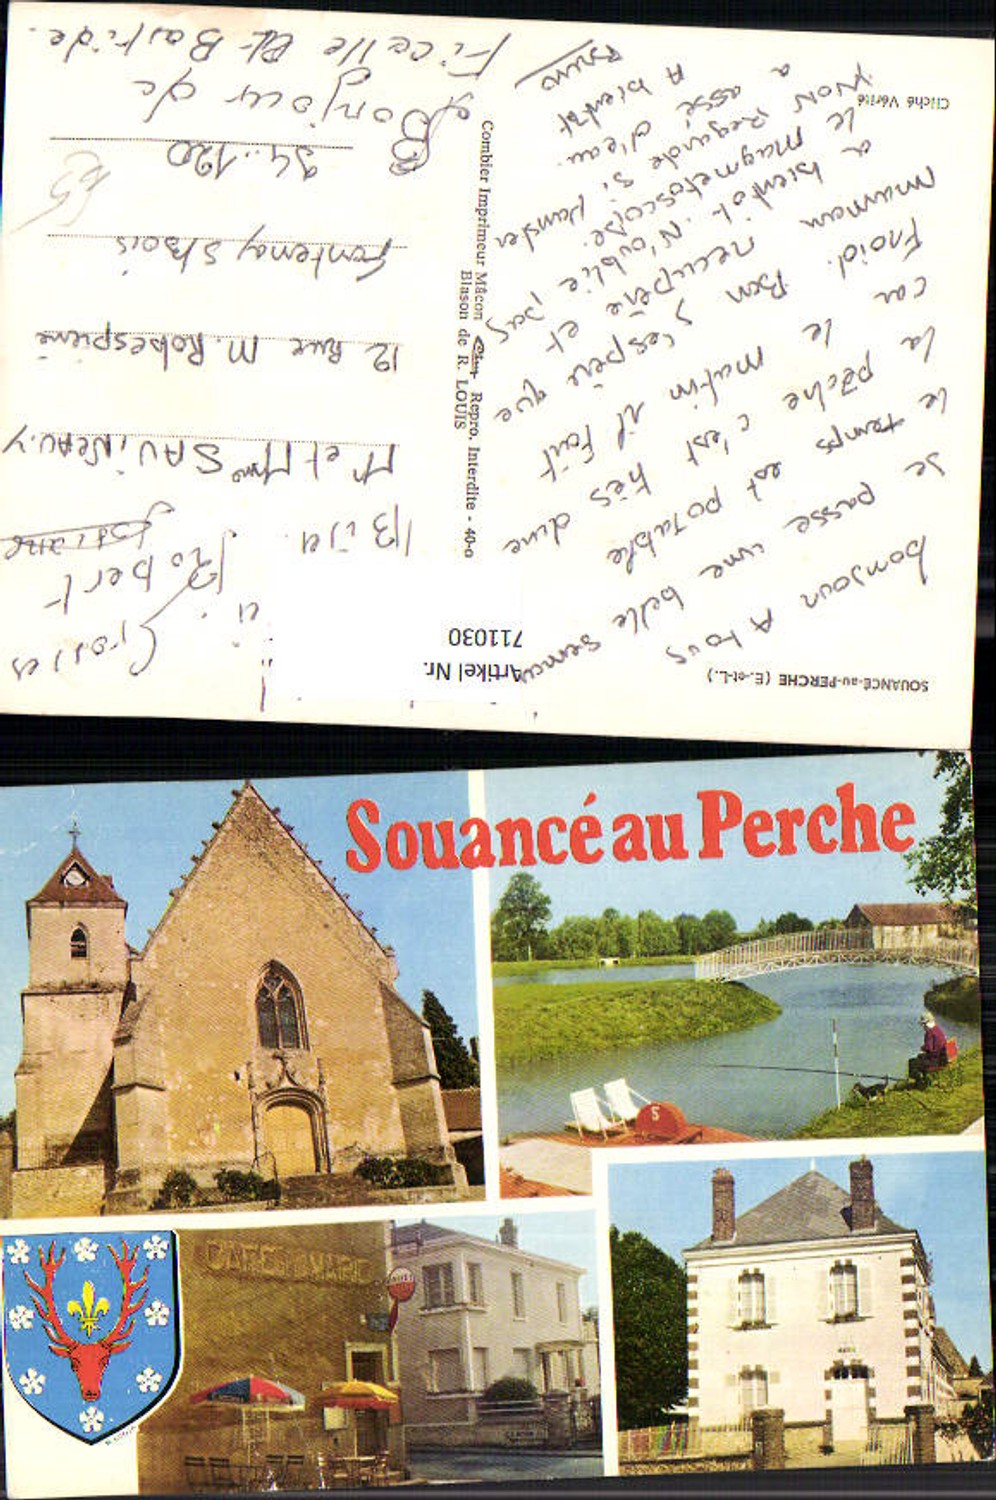 SOUANCÉ-au-PERCHE (E.-et-L.)
Artikel Nr.
711030
bonjour A tous
je passe une belle
le temps est potable
la pêche c'est très dure
car le matin il fait
froid. Bon j'espère que
maman récupère et
a bientôt. N'oublie pas
le magnetoscope.
mon
a assé d'eau.
A bientôt
Bruno
Cliché Vérité
Combier Imprimeur Mâcon Repro. Interdite - 40-o
Blason de R. LOUIS
Grosses
Bija
Robert
Mr et Mme SAVINEAU.Y
12 Rue M. Robespierre
fontenay s/bois
94.120
Bonjour de
Ficelle et Bastide.
Souancé au Perche
CAFE
S